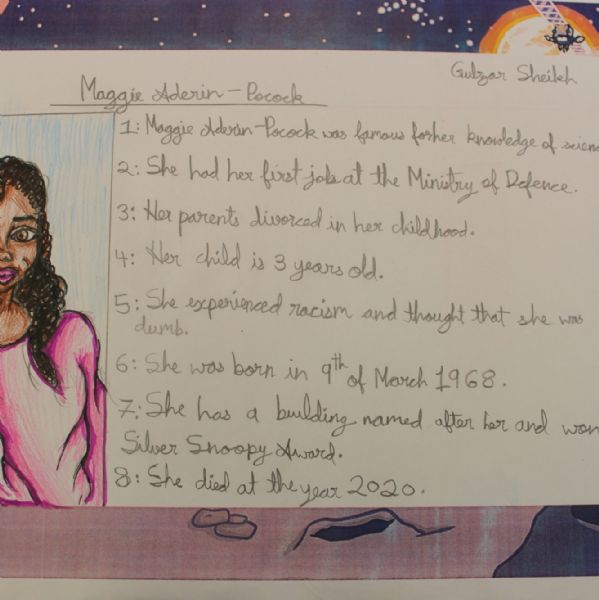 Gulzar Sheikh
Maggie Aderin-Pocock
1: Maggie Aderin-Pocock was famous for her knowledge of scien
2: She had her first job at the Ministry of Defence.
3: Her parents divorced in her childhood.
4: Her child is 3 years old.
5: She experienced racism and thought that she was
dumb.
6: She was born in 9th of March 1968.
7: She has a building named after her and won
Silver Snoopy Award.
8: She died at the year 2020.